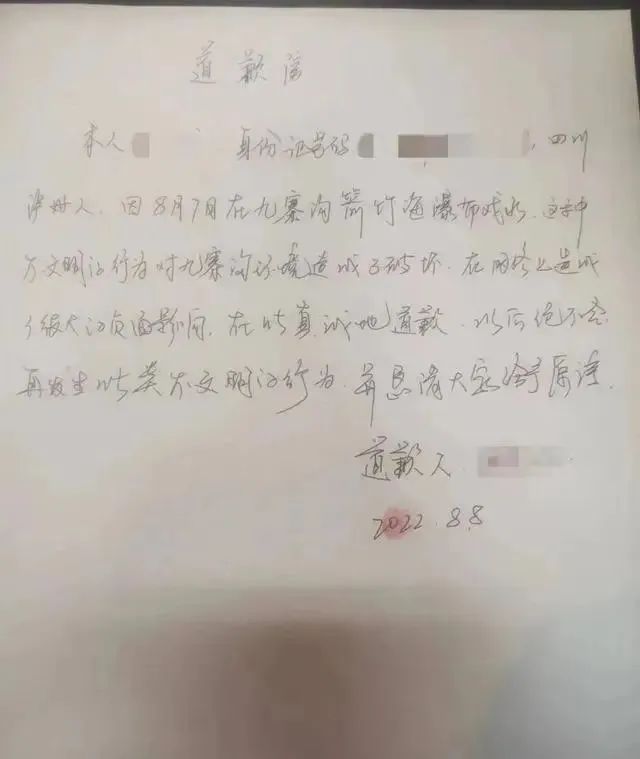 道歉信
本人 身份证号码 ,四川
泸州人,因8月7日在九寨沟箭竹海瀑布戏水,这种
不文明的行为对九寨沟环境造成了破坏.在网络上造成
了很大的负面影响,在此真诚地道歉.以后绝不会
再发生此类不文明的行为.并恳请大家给予原谅.
道歉人
2022.8.8